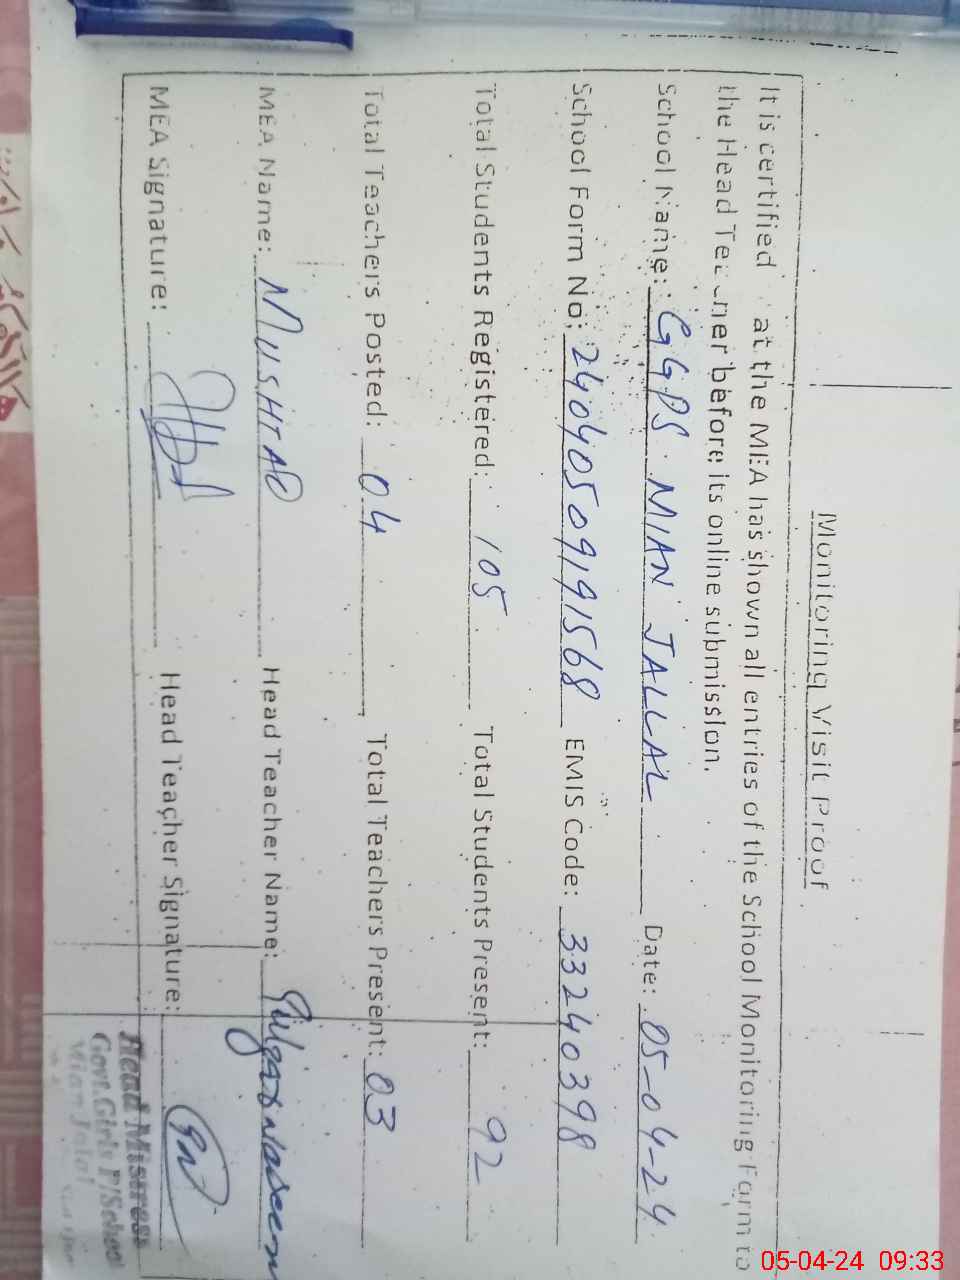 Monitoring Visit Proof
It is certified at the MEA has shown all entries of the School Monitoring Form to
the Head Teacher before its online submission.
School Name: GGPS MIAN JALLAL Date: 05-04-24
School Form No: 24040509191568 EMIS Code: 33240398
Total Students Registered: 105 Total Students Present: 92
Total Teachers Posted: 04 Total Teachers Present: 03
MEA Name: MUSHTAQ Head Teacher Name:
MEA Signature: Head Teacher Signature:
Head Mistress
Govt. Girls P/School
Mian Jalal
05-04-24 09:33